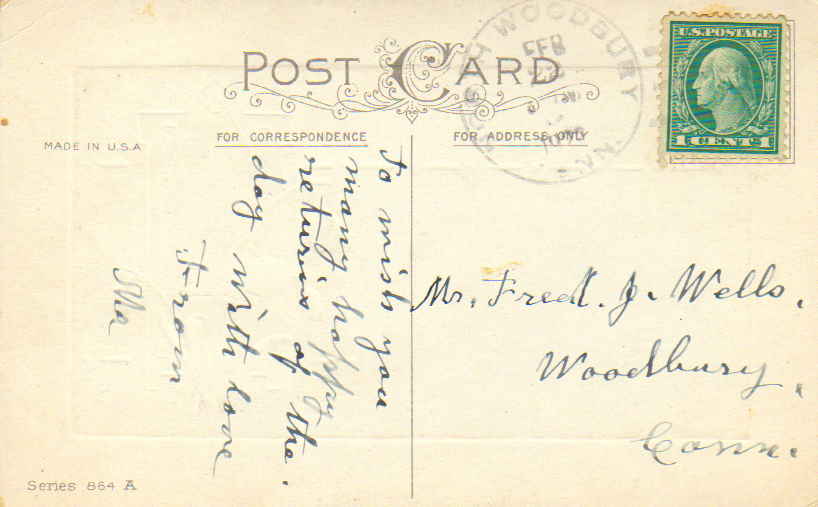 POST CARD
FOR CORRESPONDENCE
FOR ADDRESS ONLY
MADE IN U.S.A
WOODBURY
FEB
U.S. POSTAGE
1 CENT 1
To wish you
many happy
returns of the
day with love
From
Ma
Mr. Fred. J. Wells.
Woodbury,
Conn.
Series 864 A